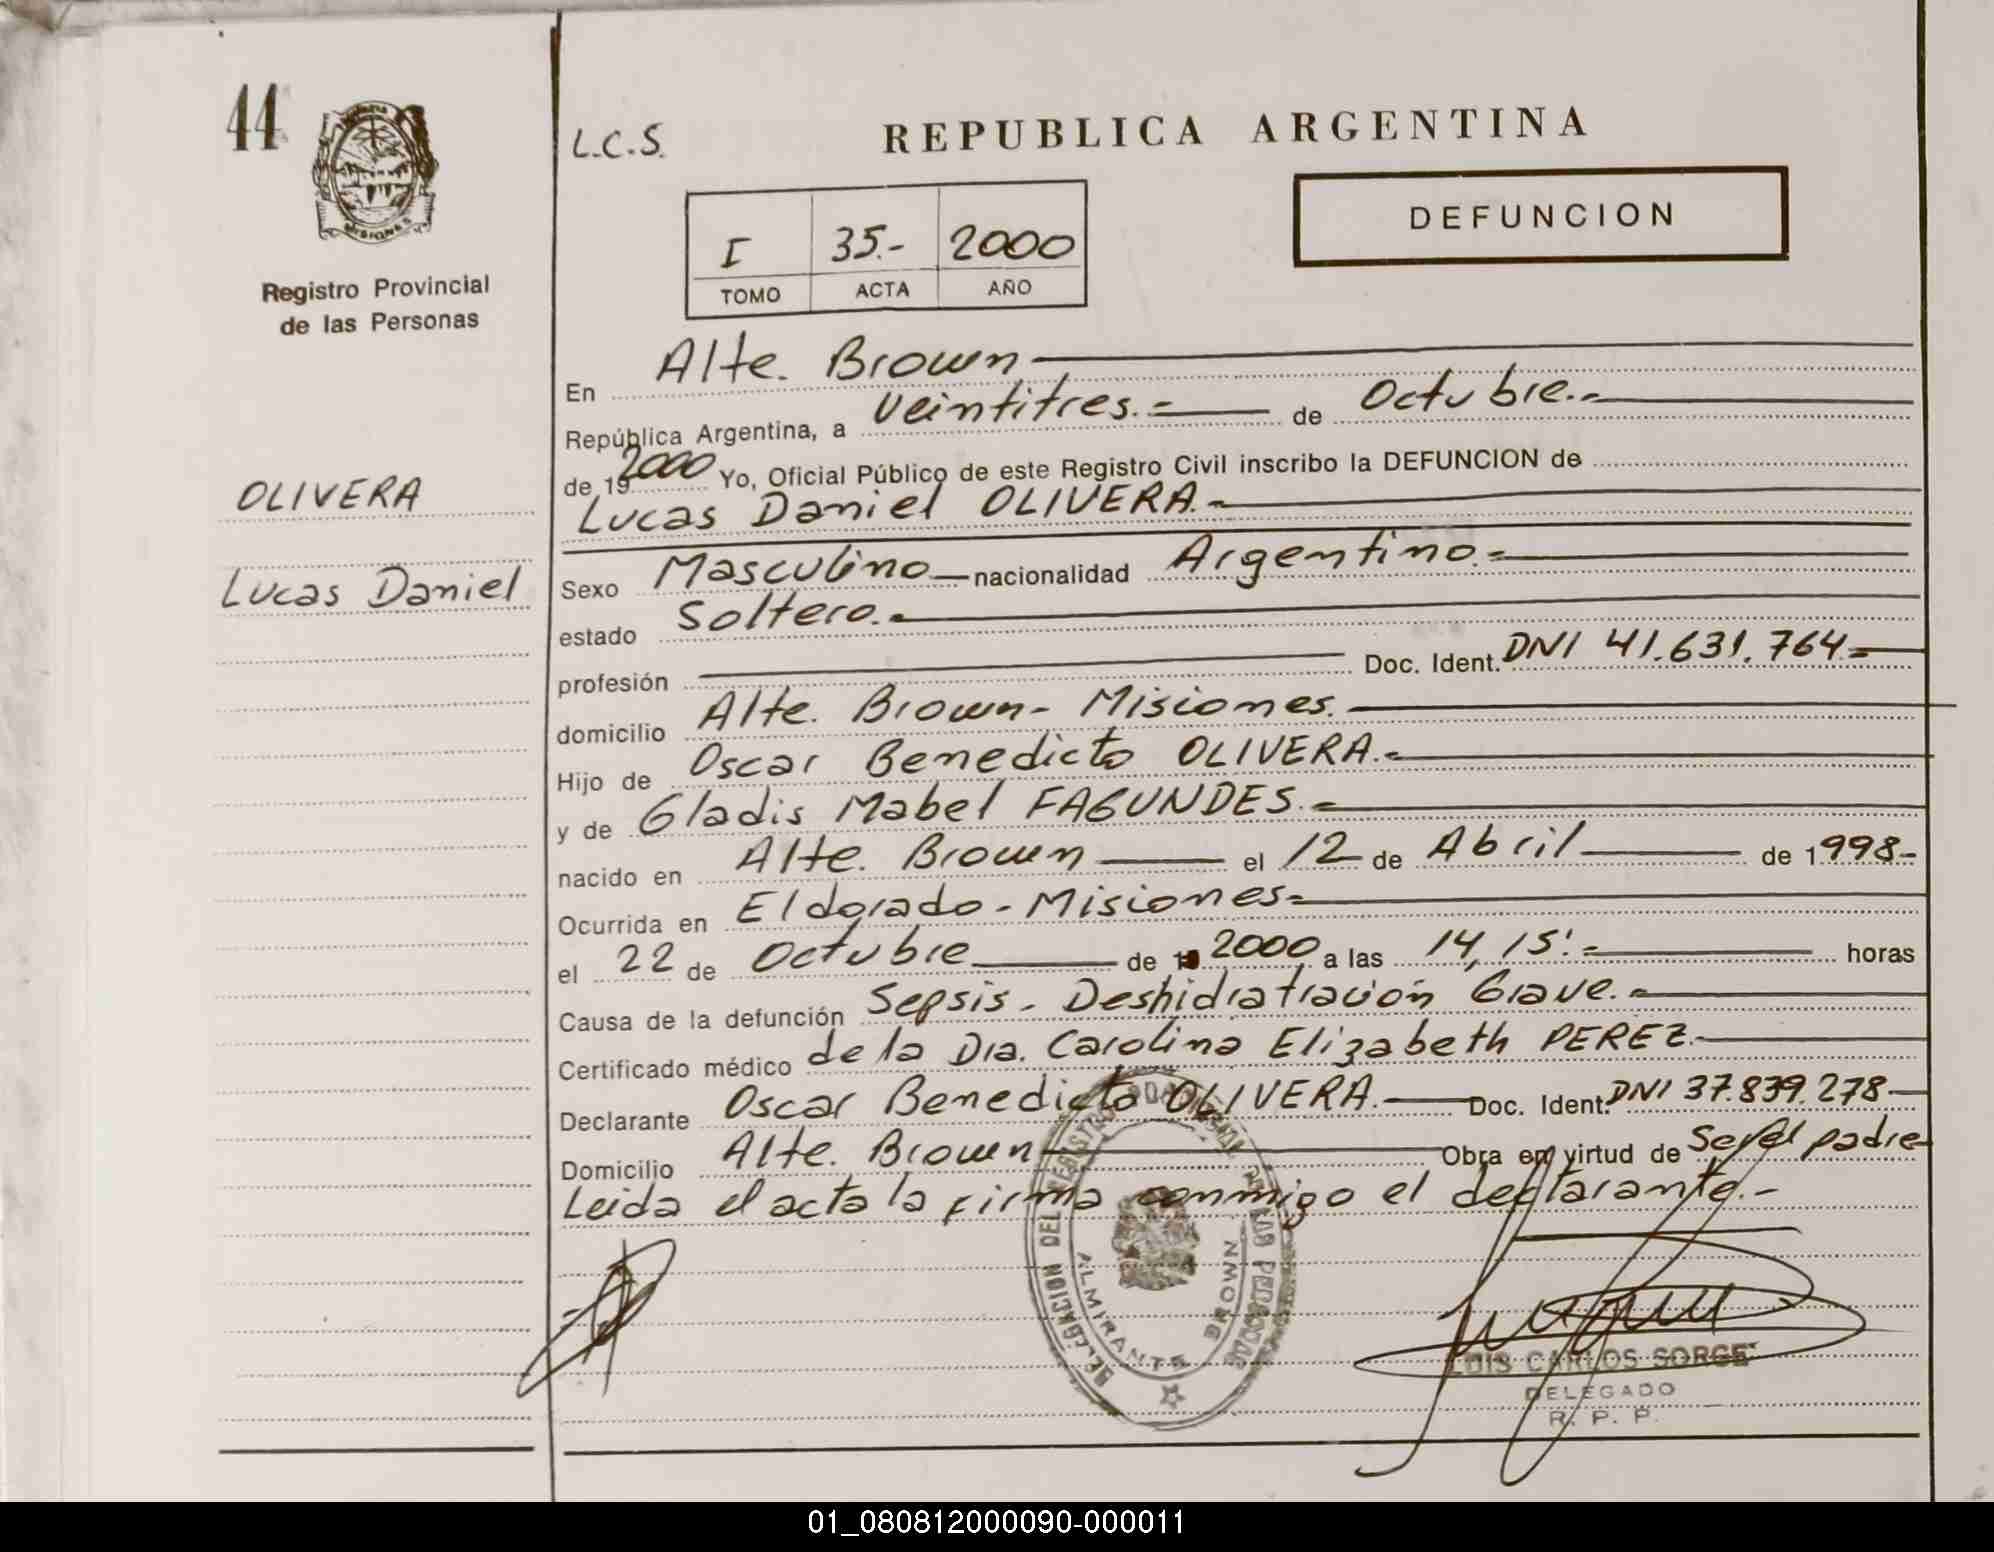 44
MISIONES
Registro Provincial
de las Personas
OLIVERA
Lucas Daniel
L.C.S.
REPUBLICA ARGENTINA
DEFUNCION
I 35.- 2000
TOMO ACTA AÑO
En Alte. Brown
República Argentina, a veintitres.= de Octubre.-
de 19 2000 Yo, Oficial Público de este Registro Civil inscribo la DEFUNCION de
Lucas Daniel OLIVERA.-
Sexo Masculino nacionalidad Argentino.=
estado Soltero.-
profesión Doc. Ident. DNI 41.631.764.=
domicilio Alte. Brown - Misiones.
Hijo de Oscar Benedicto OLIVERA.=
y de Gladis Mabel FAGUNDES.=
nacido en Alte. Brown el 12 de Abril de 1998-
Ocurrida en Eldorado - Misiones=
el 22 de Octubre de 1 2000 a las 14,15'.= horas
Causa de la defunción Sepsis - Deshidratración Grave.=
Certificado médico de la Dra. Carolina Elizabeth PEREZ.-
Declarante Oscar Benedicto OLIVERA. Doc. Ident. DNI 37.839.278
Domicilio Alte. Brown Obra en virtud de Ser el padre
Leida el acta la firma conmigo el declarante.-
DELEGACION DEL REGISTRO PROVINCIAL DE LAS PERSONAS
ALMIRANTE BROWN
LUIS CARLOS SORGE
DELEGADO
R. P. P.
01_080812000090-000011